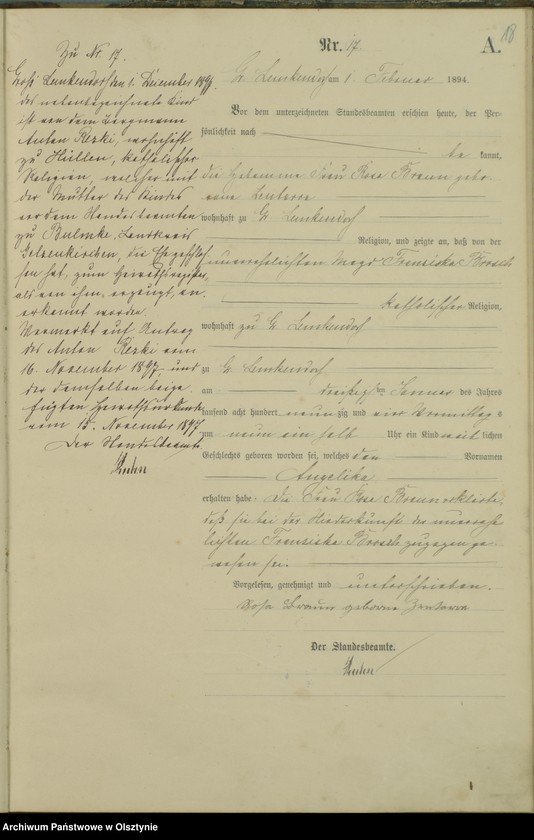 18
Nr. 17.
A.
Gr Lemkendorf am 1. Februar 1894.
Vor dem unterzeichneten Standesbeamten erschien heute, der Per-
sönlichkeit nach
be kannt,
die Hebamme Frau Rosa Braun gebo-
rene
wohnhaft zu Gr Lemkendorf
Religion, und zeigte an, daß von der
unverehelichten Magd Franziska Brosch
katholischer Religion,
wohnhaft zu Gr Lemkendorf
zu Gr Lemkendorf
am dreißigsten Januar des Jahres
tausend acht hundert neun zig und vier Vormittag s
um neun ein halb Uhr ein Kind weib lichen
Geschlechts geboren worden sei, welches den Vornamen
Angelika
erhalten habe. Die Frau Rosa Braun erklärte,
daß sie bei der Niederkunft der unverehe-
lichten Franziska Brosch zugegen ge-
wesen sei.
Vorgelesen, genehmigt und unterschrieben.
Rosa Braun geborene
Der Standesbeamte.
Zu Nr. 17.
Groß Lemkendorf den 1. Dezember 1897.
das nebenbezeichnete Kind
ist von dem Bergmann
Anton Rezki, wohnhaft
zu Hüllen, katholischer
Religion, welcher mit
der Mutter des Kindes
vor dem Standesbeamten
zu Bulmke, Landkreis
Gelsenkirchen, die Ehe geschlos-
sen hat, zum Heirathsregister,
als von ihm erzeugt, an-
erkannt worden.
Vermerkt auf Antrag
des Anton Rezki vom
16. November 1897, und
der demselben beige-
fügten Heirathsurkunde
vom 15. November 1897.
Der Standesbeamte
Archiwum Państwowe w Olsztynie